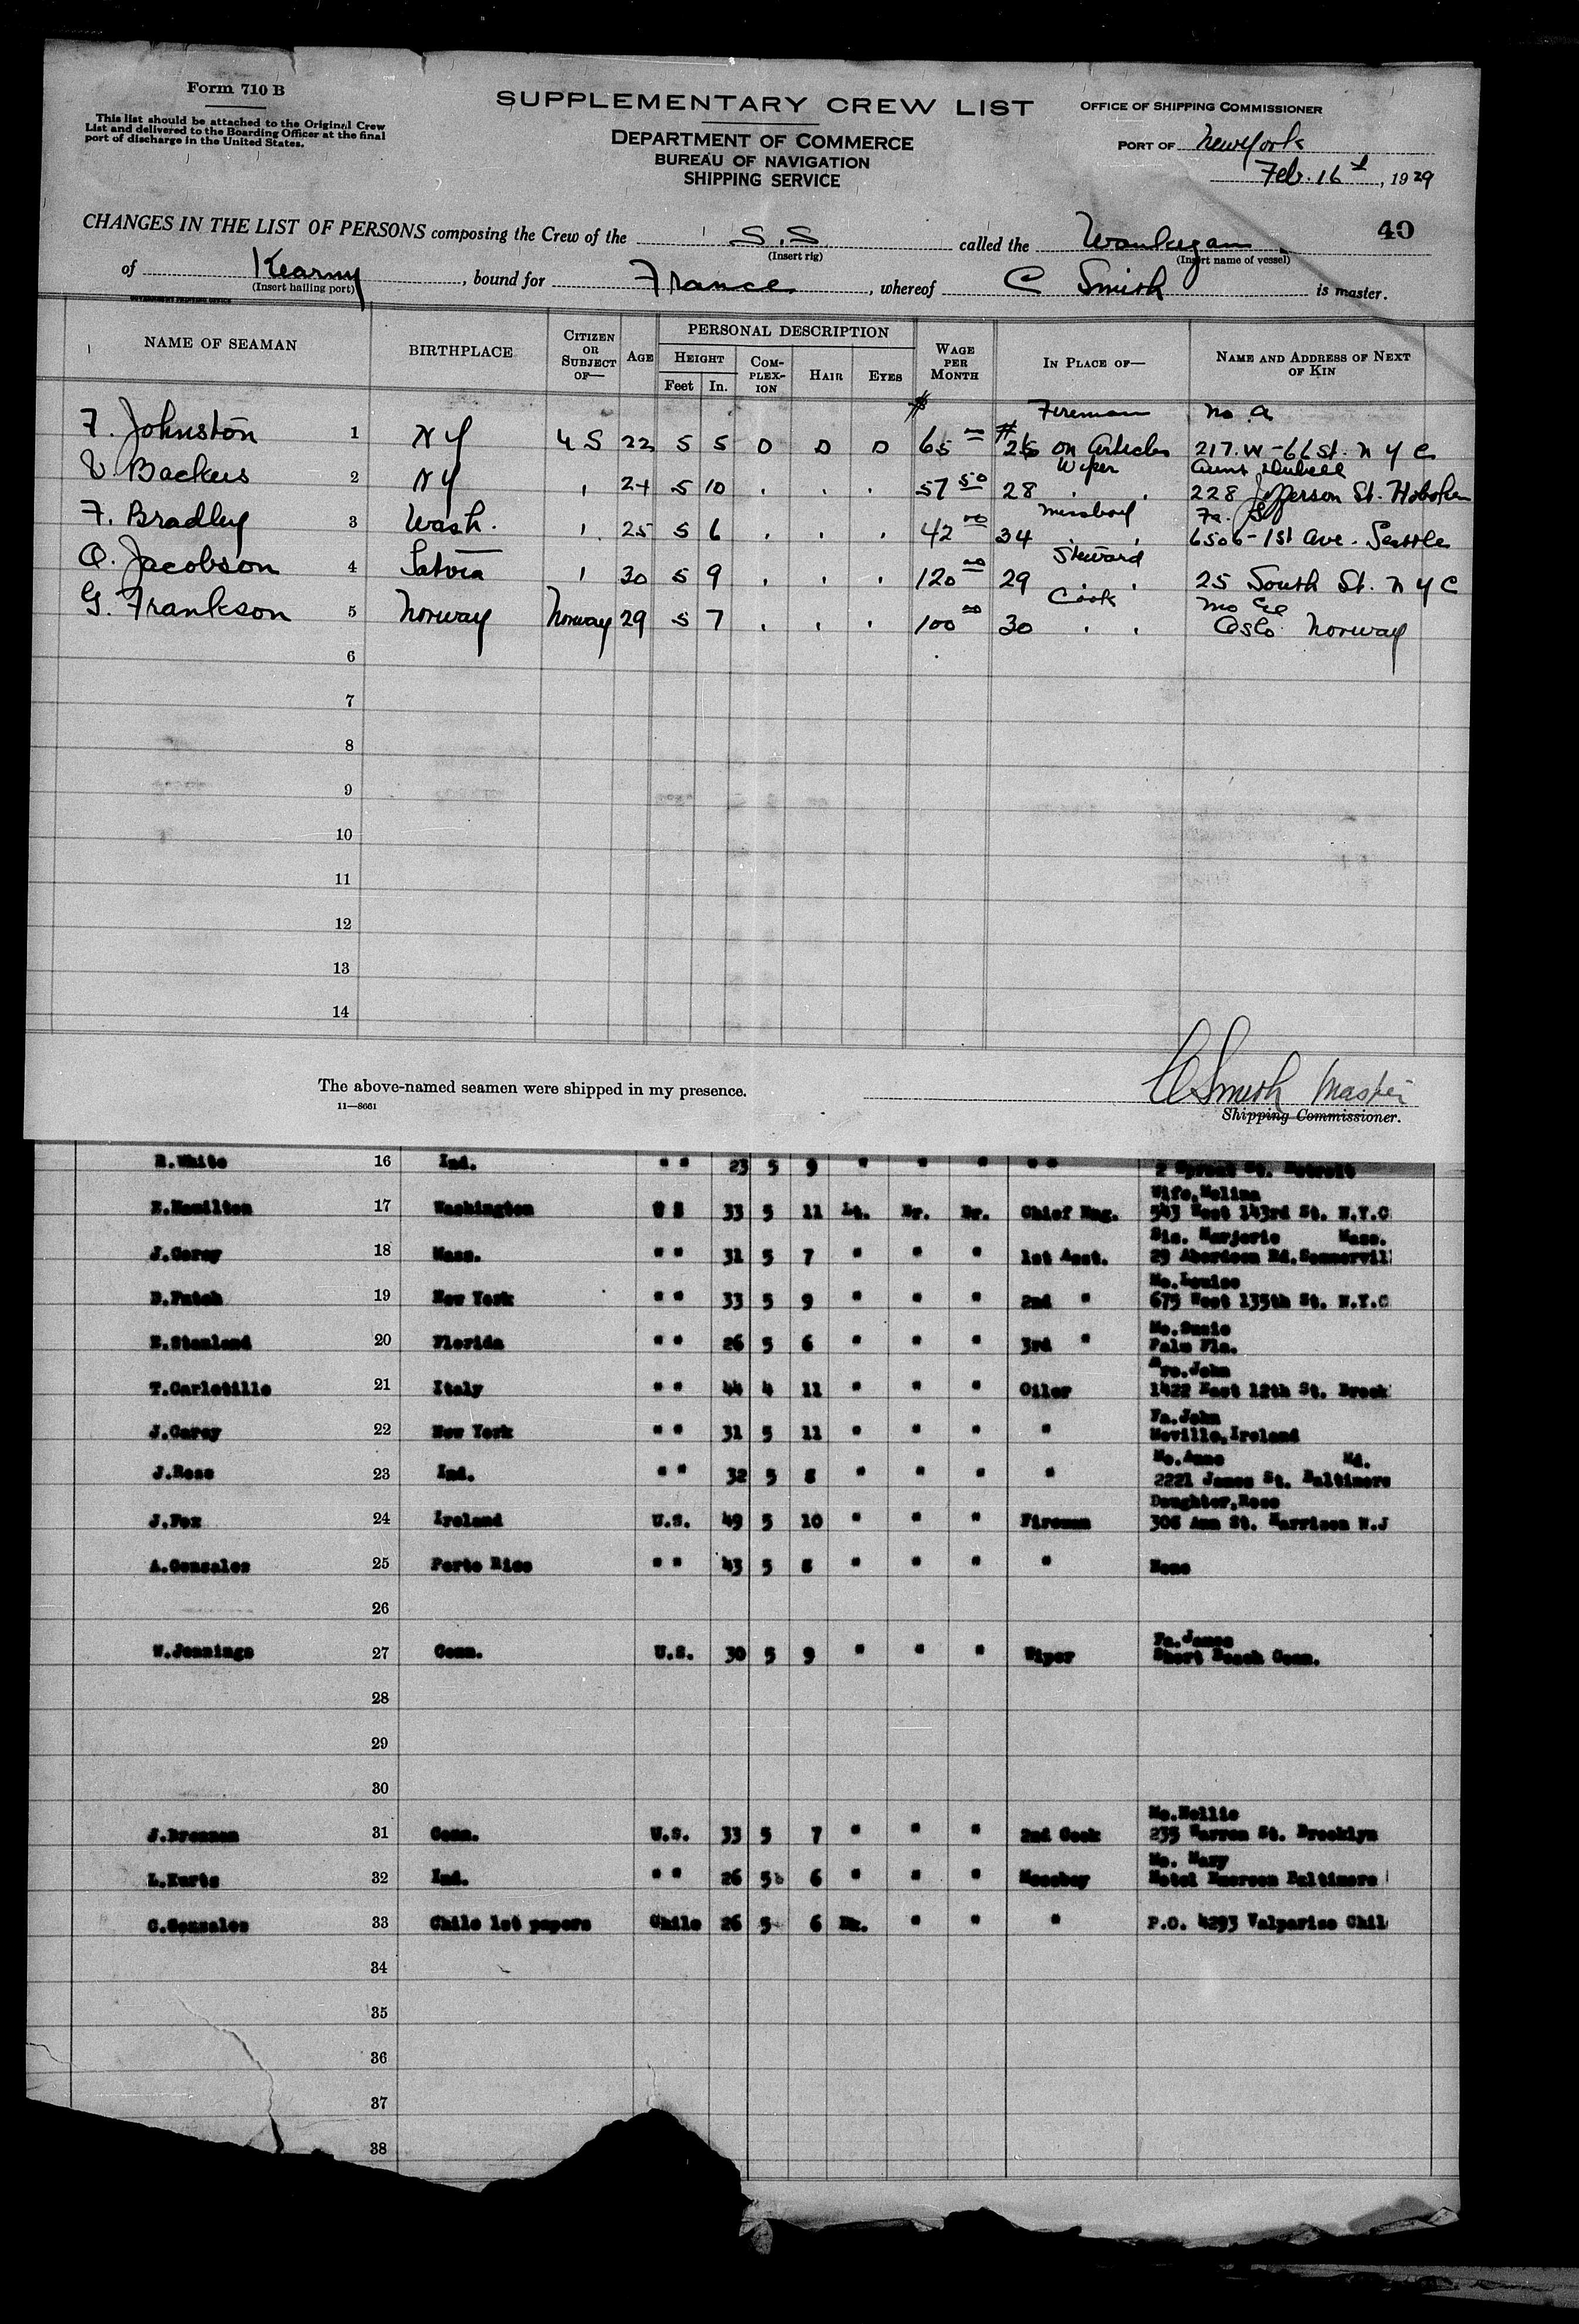 Form 710 B
This list should be attached to the Original Crew
List and delivered to the Boarding Officer at the final
port of discharge in the United States.
SUPPLEMENTARY CREW LIST
DEPARTMENT OF COMMERCE
BUREAU OF NAVIGATION
SHIPPING SERVICE
OFFICE OF SHIPPING COMMISSIONER
PORT OF New York
Feb. 16th, 1929
40
CHANGES IN THE LIST OF PERSONS composing the Crew of the S.S called the Waukegan
(Insert rig) (Insert name of vessel)
of Kearny, bound for France, whereof C Smith is master.
(Insert hailing port)
GOVERNMENT PRINTING OFFICE
NAME OF SEAMAN BIRTHPLACE CITIZEN OR SUBJECT OF— AGE PERSONAL DESCRIPTION HEIGHT Feet In. COMPLEXION HAIR EYES WAGE PER MONTH IN PLACE OF— NAME AND ADDRESS OF NEXT OF KIN
Fireman mo a
F. Johnston 1 NY U S 22 5 5 D D D $ 65 # 26 on Articles 217. W - 66 St. N Y C
Wiper Aunt
V. Backus 2 NY " 24 5 10 " " " 57 50 28 " " 228 Jefferson St. Hoboken
Messboy Fa.
F. Bradley 3 Wash. " 25 5 6 " " " 42 00 34 " " 6506 - 1st Ave. Seattle
Steward
O. Jacobson 4 Latvia " 30 5 9 " " " 120 00 29 " " 25 South St. N Y C
Cook mo
G. Frankson 5 Norway Norway 29 5 7 " " " 100 00 30 " " Oslo Norway
6
7
8
9
10
11
12
13
14
The above-named seamen were shipped in my presence.
11—8661
C Smith Master
Shipping Commissioner.
R.White 16 Ind. " " 23 5 9 " " " " " St. Detroit
Wife,Melina
E.Hamilton 17 Washington U S 33 5 11 Lt. Br. Br. Chief Eng. 543 West 143rd St. N.Y.C
Sis. Marjorie Mass.
J.Carey 18 Mass. " " 31 5 7 " " " 1st Asst. 29 Aberdeen Rd.Sommervil
Mo.Louise
D.Patch 19 New York " " 33 5 9 " " " 2nd " 675 West 135th St. N.Y.C
Mo.Susie
E.Stanland 20 Florida " " 26 5 6 " " " 3rd " Palm Fla.
Bro.John
T.Carletillo 21 Italy " " 44 4 11 " " " Oiler 1422 East 12th St. Brook
Fa.John
J.Carey 22 New York " " 31 5 11 " " " " Neville,Ireland
Mo.Anne Md.
J.Rose 23 Ind. " " 32 5 8 " " " " 2221 James St. Baltimore
Daughter,Rose
J.Fox 24 Ireland U.S. 49 5 10 " " " Fireman 306 Ann St. Harrison N.J
A.Gonzales 25 Porto Rico " " 43 5 8 " " " " None
26
Fa.James
W.Jennings 27 Conn. U.S. 30 5 9 " " " Wiper Short Beach Conn.
28
29
30
Mo.Nellie
J.Brennan 31 Conn. U.S. 33 5 7 " " " 2nd Cook 235 Warren St. Brooklyn
Mo. Mary
L.Kurtz 32 Ind. " " 26 5 6 " " " Messboy Hotel Emerson Baltimore
C.Gonzales 33 Chile 1st papers Chile 26 5 6 Dk. " " " P.O. 4293 Valpariso Chil
34
35
36
37
38